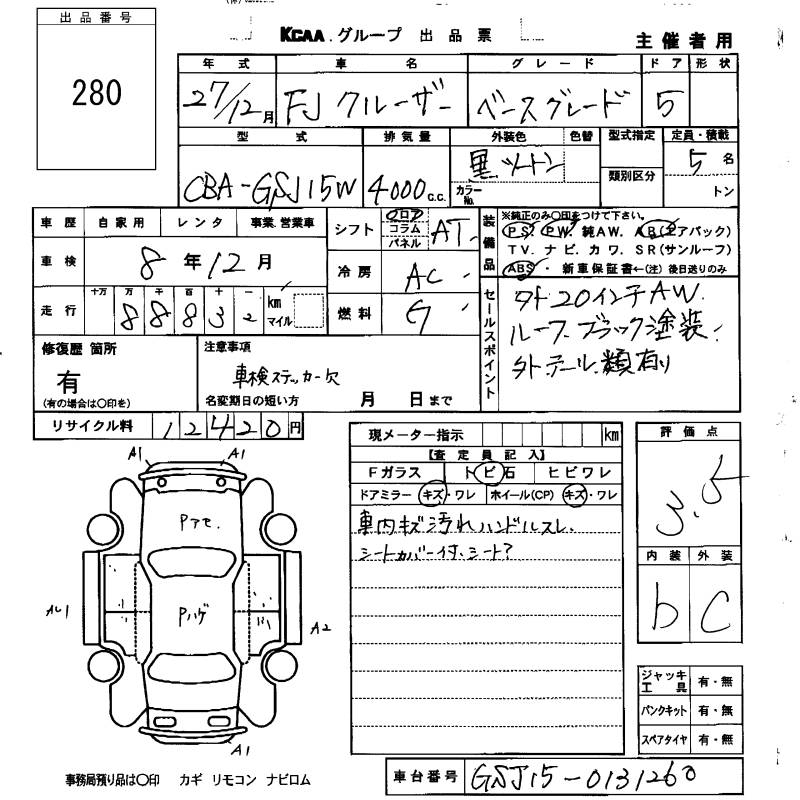 出品番号
280
KCAA.グループ 出品票
主催者用
年式 車名 グレード ドア 形状
27/12月 FJクルーザー ベースグレード 5
型式 排気量 外装色 色替 型式指定 定員・積載
CBA-GSJ15W 4000c.c. 黒ツートン カラーNo. 類別区分 5名
トン
車歴 自家用 レンタ 事業.営業車
シフト フロア コラム パネル AT
装備品 ※純正のみ〇印をつけて下さい。
PS PW 純AW. AB(エアバック)
TV. ナビ. カワ. SR(サンルーフ)
ABS・新車保証書←(注)後日送りのみ
車検 8年12月
冷房 AC
走行 十万 万 千 百 十 一 km マイル
88832
燃料 G
セールスポイント
外20インチAW.
ルーフ.ブラック塗装
外テール類有り
修復歴 箇所
有
(有の場合は〇印を)
注意事項
車検ステッカー欠
名変期日の短い方 月 日まで
リサイクル料 12420円
現メーター指示 km
【査定員記入】
Fガラス トビ石 ヒビワレ
ドアミラー キズ・ワレ ホイール(CP) キズ・ワレ
車内キズ汚れハンドルスレ.
シートカバー付.シート?
評価点
3.5
内装 外装
b C
A1 A1
Pアモ.
Pハゲ
A2
A1
ジャッキ工具 有・無
パンクキット 有・無
スペアタイヤ 有・無
事務局預り品は〇印 カギ リモコン ナビロム
車台番号 GSJ15-0131260